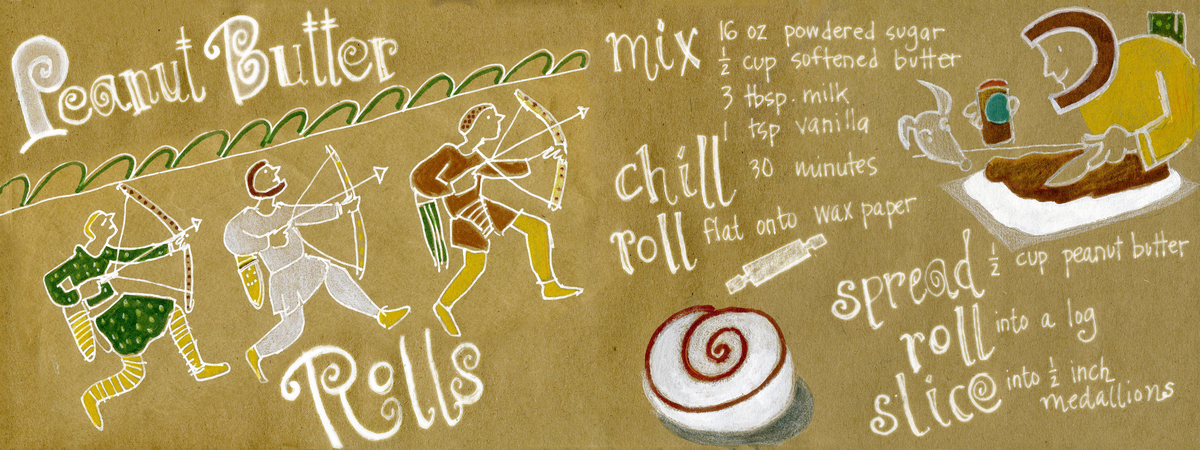 Peanut Butter
Rolls
mix 16 oz powdered sugar
½ cup softened butter
3 tbsp. milk
1 tsp vanilla
chill 30 minutes
roll flat onto wax paper
spread ½ cup peanut butter
roll into a log
slice into ½ inch
medallions